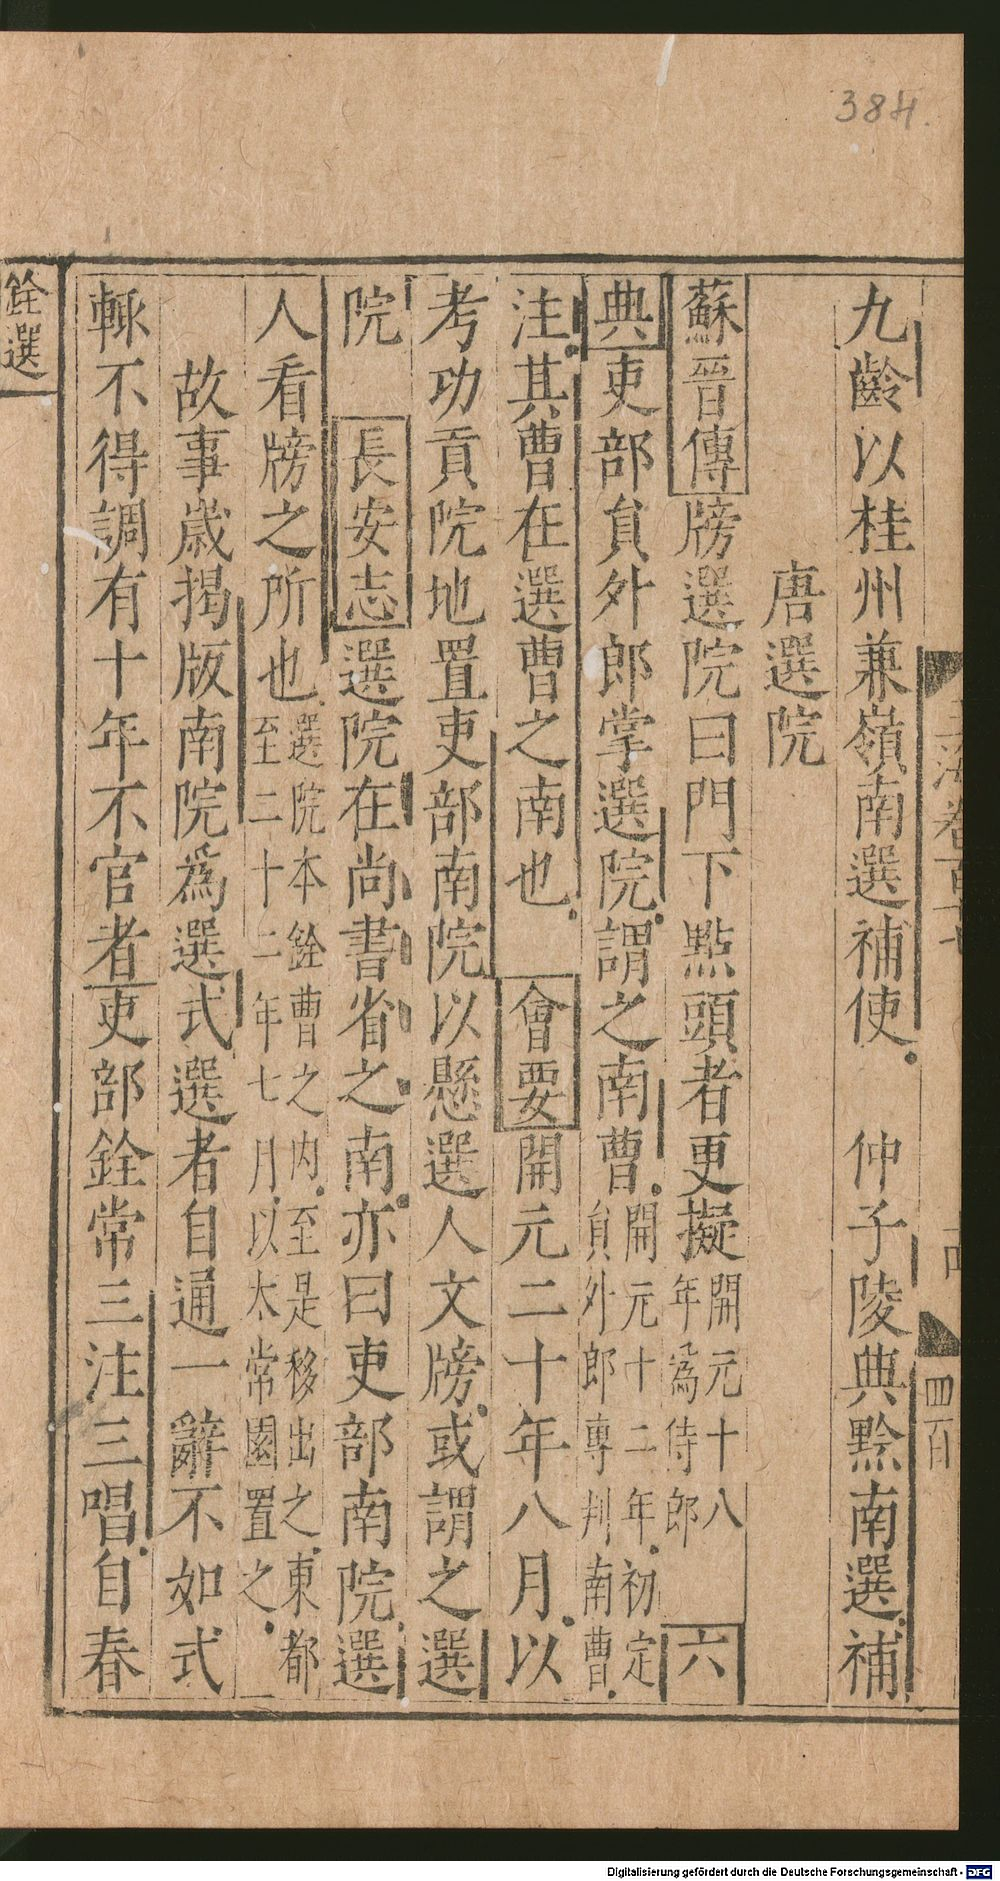 384.
四百
九齡以桂州兼嶺南選補使　仲子陵典黔南選補
唐選院
蘇晉傳牓選院曰門下點頭者更擬開元十八年為侍郎六
典吏部貟外郎掌選院謂之南曹開元十二年初定貟外郎專判南曹
注其曹在選曹之南也會要開元二十年八月以
考功貢院地置吏部南院以懸選人文牓或謂之選
院　長安志選院在尚書省之南亦曰吏部南院選
人看牓之所也選院本銓曹之內至是移出之東都至二十二年七月以太常園置之
故事歲揭版南院為選式選者自通一辭不如式
輙不得調有十年不官者吏部銓常三注三唱自春
銓選
Digitalisierung gefördert durch die Deutsche Forschungsgemeinschaft - DFG